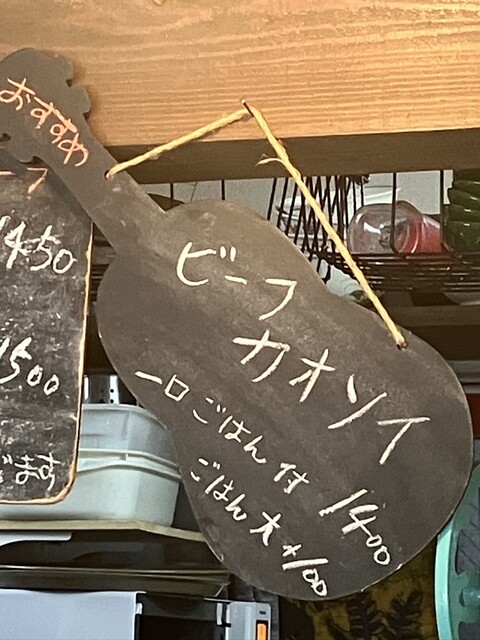 おすすめ
ビーフ
カオソイ
一口ごはん付 1400
ごはん大+100
1450
1500
ます